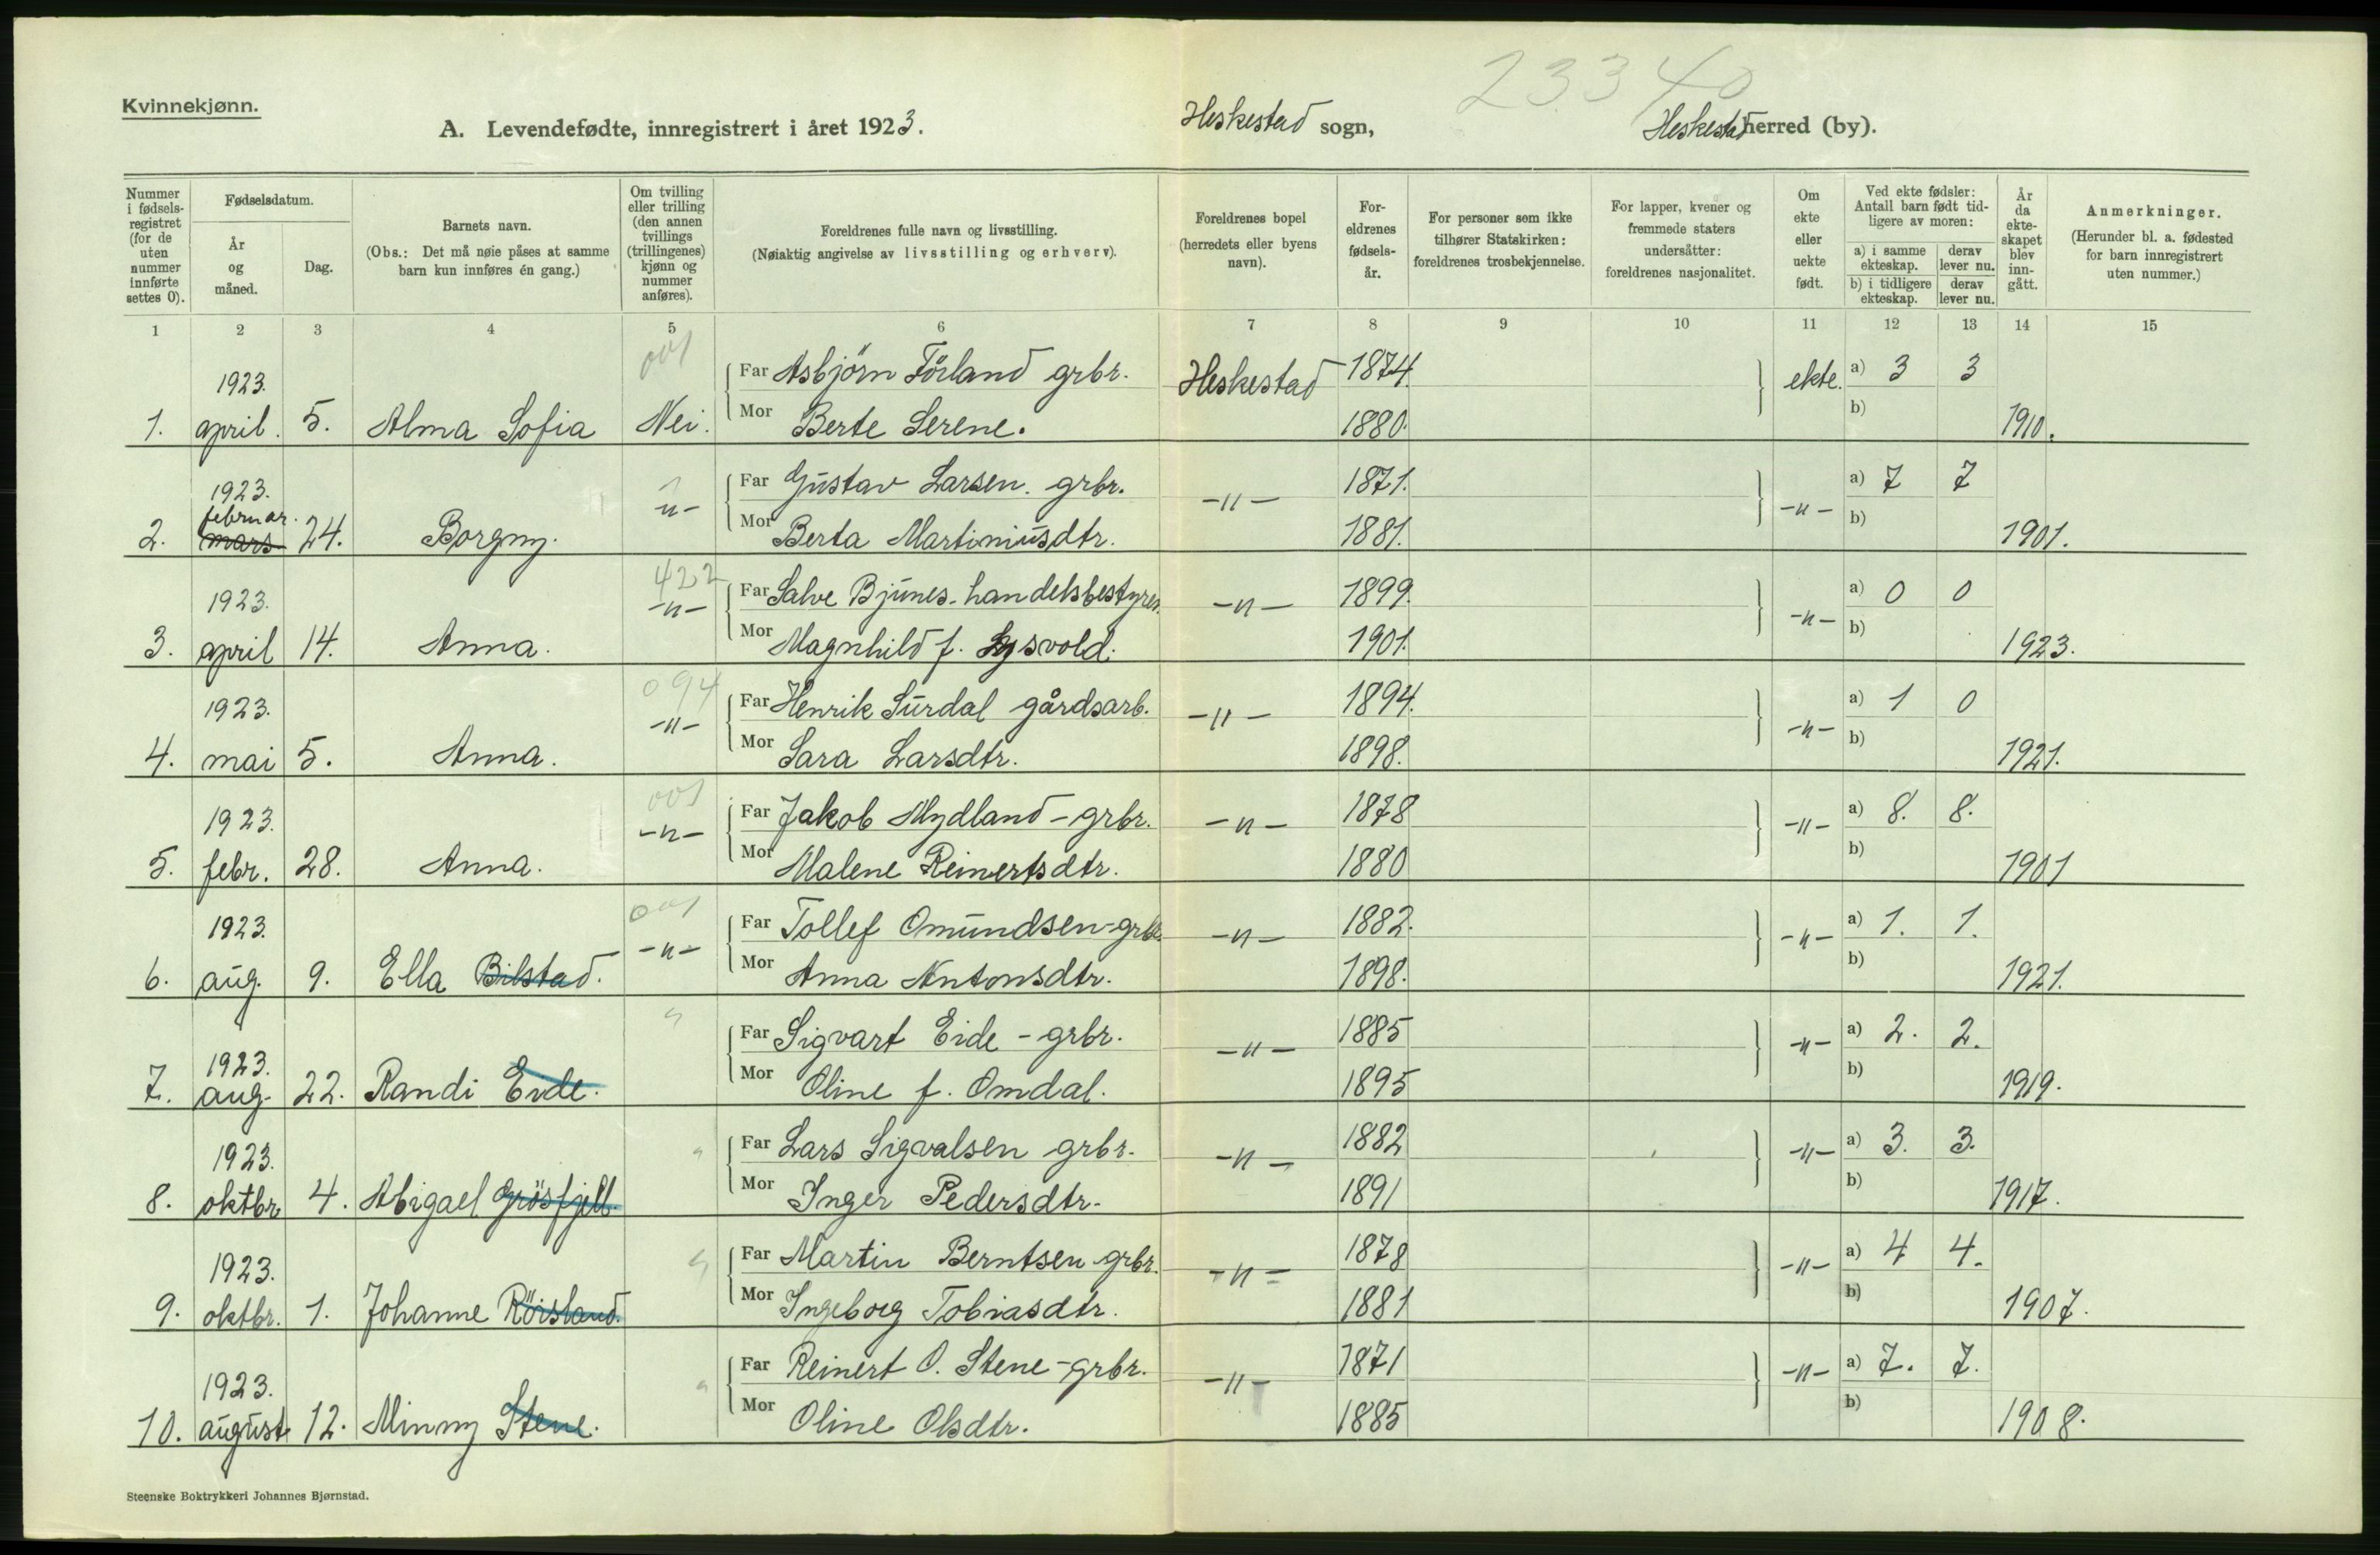 23340
Kvinnekjønn.
A. Levendefødte, innregistrert i året 1923. Heskestad sogn, Heskestad herred (by).
Nummer i fødsels-registret (for de uten nummer innførte settes 0).
Fødselsdatum.
År og måned.
Dag.
Barnets navn.
(Obs.: Det må nøie påses at samme barn kun innføres én gang.)
Om tvilling eller trilling (den annen tvillings (trillingenes) kjønn og nummer anføres).
Foreldrenes fulle navn og livsstilling.
(Nøiaktig angivelse av livsstilling og erhverv).
Foreldrenes bopel (herredets eller byens navn).
For-eldrenes fødsels-år.
For personer som ikke tilhører Statskirken: foreldrenes trosbekjennelse.
For lapper, kvener og fremmede staters undersåtter: foreldrenes nasjonalitet.
Om ekte eller uekte født.
Ved ekte fødsler: Antall barn født tid-ligere av moren:
a) i samme ekteskap. derav lever nu.
b) i tidligere ekteskap. derav lever nu.
År da ekte-skapet blev inn-gått.
Anmerkninger.
(Herunder bl. a. fødested for barn innregistrert uten nummer.)
1 2 3 4 5 6 7 8 9 10 11 12 13 14 15
001
1923. Far Asbjörn Förland grbr. Heskestad 1874. ekte. a) 3 3
1. april. 5. Alma Sofia Nei. Mor Berte Serene. 1880. b) 1910.
1923. -"- Far Gustav Larsen. grbr. -"- 1871. -"- a) 7 7
februar.
2. mars 24. Borgny. Mor Berta Martiniusdtr. 1881. b) 1901.
422
1923. -"- Far Salve Bjunes-handelsbestyrer. -"- 1899. -"- a) 0 0
3. april 14. Anna. Mor Magnhild f. Lysvold. 1901. b) 1923.
094
1923. -"- Far Henrik Surdal gårdsarb. -"- 1894. -"- a) 1 0
4. mai 5. Anna. Mor Sara Larsdtr. 1898. b) 1921.
001
1923. -"- Far Jakob Mydland-grbr. -"- 1878 -"- a) 8. 8.
5. febr. 28. Anna. Mor Malene Reinertsdtr. 1880 b) 1901
001
1923. -"- Far Tollef Omundsen-grbr. -"- 1882. -"- a) 1. 1.
6. aug. 9. Ella Bilstad. Mor Anna Antonsdtr. 1898. b) 1921.
1923. " Far Sigvart Eide - grbr. -"- 1885 -"- a) 2. 2.
7. aug. 22. Randi Eide. Mor Oline f. Omdal. 1895 b) 1919.
1923. " Far Lars Sigvalsen grbr. -"- 1882 -"- a) 3. 3.
8. oktbr 4. Abigael Grösfjell. Mor Inger Pedersdtr. 1891 b) 1917.
1923. " Far Martin Berntsen grbr. -"- 1878 -"- a) 4 4.
9. oktbr. 1. Johanne Röisland. Mor Ingeborg Tobiasdtr. 1881 b) 1907.
1923. " Far Reinert O. Stene-grbr. -"- 1871 -"- a) 7. 7.
10. august 12. Minny Stene. Mor Oline Olsdtr. 1885 b) 1908.
Steenske Boktrykkeri Johannes Bjørnstad.